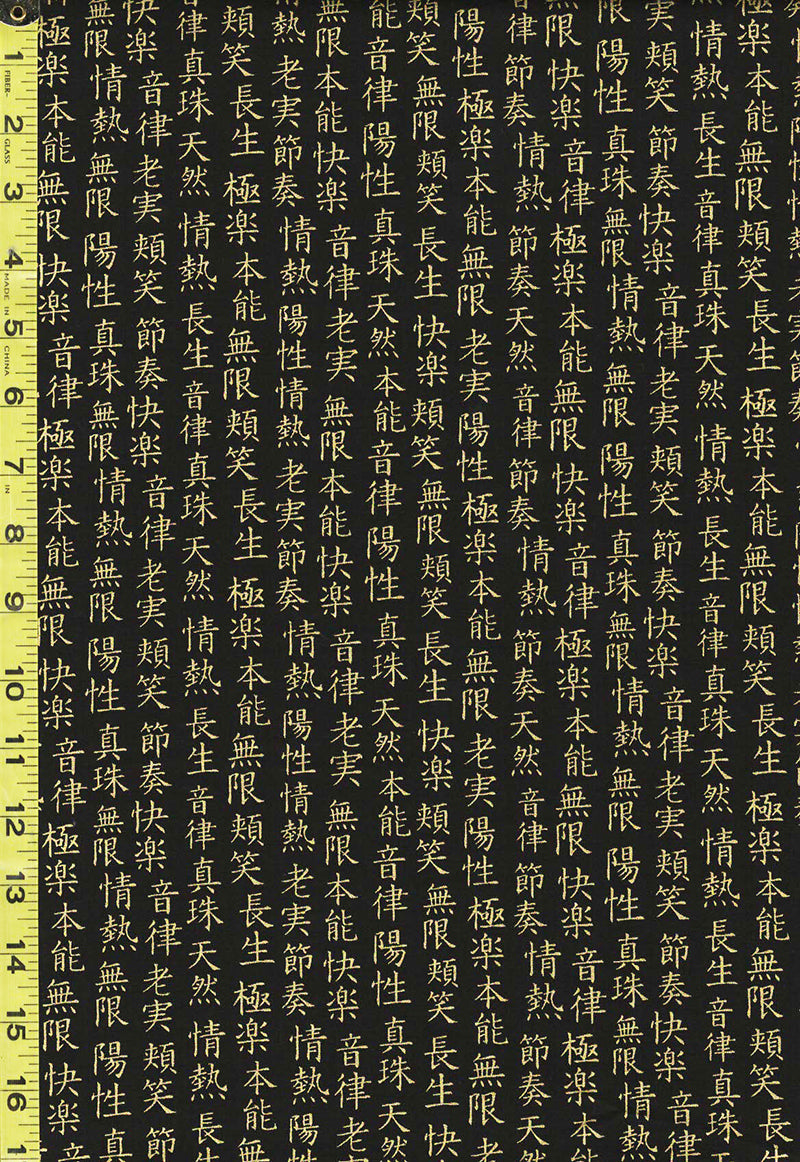 極楽 本能 無限 頬笑 長生 極楽 本能 無限 頬笑 長生 極楽 本能 無限 頬笑 長生
情熱 長生 音律 真珠 天然 情熱 長生 音律 真珠 天然 情熱 長生 音律 真珠
実 頬笑 節奏 快楽 音律 老実 頬笑 節奏 快楽 音律 老実 頬笑 節奏 快楽 音
限 陽性 真珠 無限 情熱 無限 陽性 真珠 無限 情熱 無限 陽性 真珠 無限 情熱
無限 快楽 音律 極楽 本能 無限 快楽 音律 極楽 本能 無限 快楽 音律 極楽 本
律 節奏 情熱 節奏 天然 音律 節奏 情熱 節奏 天然 音律 節奏 情熱 節奏 天
陽性 極楽 本能 無限 老実 陽性 極楽 本能 無限 老実 陽性 極楽 本能 無限 老
頬笑 無限 頬笑 長生 快楽 頬笑 無限 頬笑 長生 快楽 頬笑 無限 頬笑 長生 快
能 音律 陽性 真珠 天然 本能 音律 陽性 真珠 天然 本能 音律 陽性 真珠 天然
無限 本能 快楽 音律 老実 無限 本能 快楽 音律 老実 無限 本能 快楽 音律 老
情熱 老実 節奏 情熱 陽性 情熱 老実 節奏 情熱 陽性 情熱 老実 節奏 情熱 陽
頬笑 長生 極楽 本能 無限 頬笑 長生 極楽 本能 無限 頬笑 長生 極楽 本能 無
律 真珠 天然 情熱 長生 音律 真珠 天然 情熱 長生 音律 真珠 天然 情熱 長生
快楽 音律 老実 頬笑 節奏 快楽 音律 老実 頬笑 節奏 快楽 音律 老実 頬笑 節
無限 情熱 無限 陽性 真珠 無限 情熱 無限 陽性 真珠 無限 情熱 無限 陽性 真
極楽 本能 無限 快楽 音律 極楽 本能 無限 快楽 音律 極楽 本能 無限 快楽 音
1 FIBER- 2 GLASS 3 4 MADE IN 5 CHINA 6 7 IN 8 9 10 11 12 13 14 15 16 1